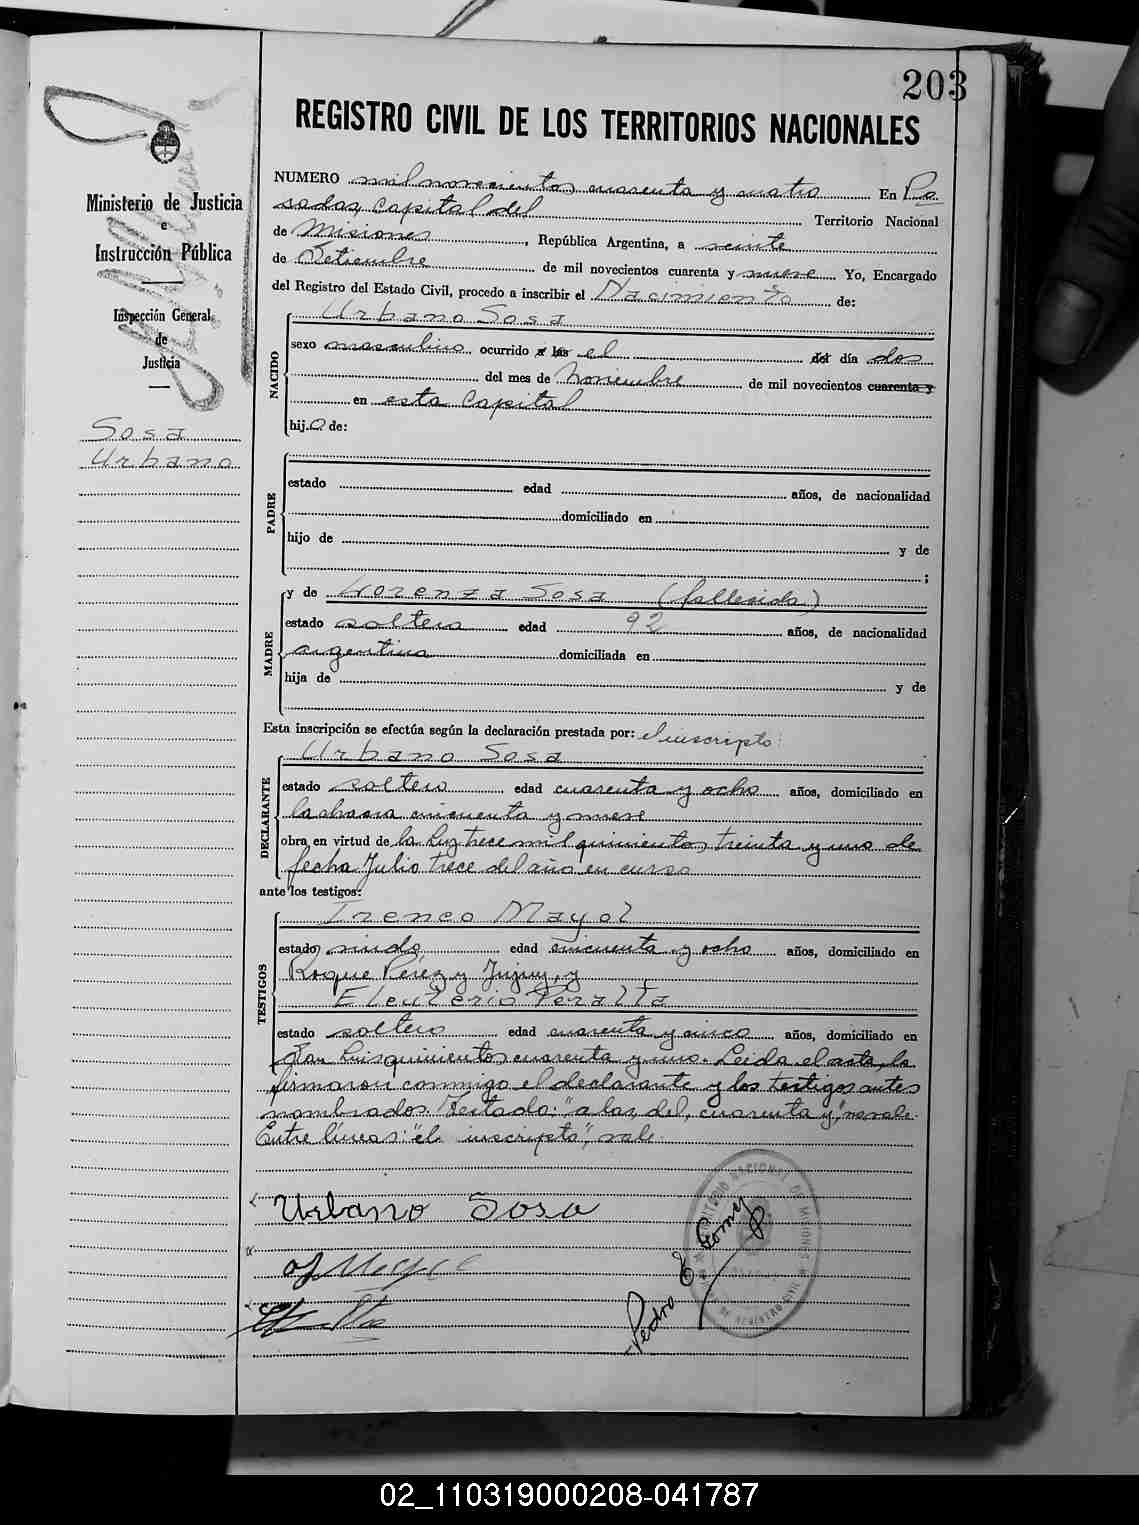 203
REGISTRO CIVIL DE LOS TERRITORIOS NACIONALES
Ministerio de Justicia
e
Instrucción Pública
Inspección General
de
Justicia
Sosa
Urbano
NUMERO mil novecientos cuarenta y cuatro En Po
sadas, Capital del Territorio Nacional
de Misiones, República Argentina, a veinte
de Setiembre de mil novecientos cuarenta y nueve Yo, Encargado
del Registro del Estado Civil, procedo a inscribir el Nacimiento de:
NACIDO
Urbano Sosa
sexo masculino ocurrido a las el del día dos
del mes de Noviembre de mil novecientos cuarenta y
en esta Capital
hijo de:
PADRE
estado edad años, de nacionalidad
domiciliado en
hijo de y de
;
MADRE
y de Lorenza Sosa (fallecida)
estado soltera edad 92 años, de nacionalidad
argentina domiciliada en
hija de y de
Esta inscripción se efectúa según la declaración prestada por: el inscripto:
DECLARANTE
Urbano Sosa
estado soltero edad cuarenta y ocho años, domiciliado en
la chacra cincuenta y nueve
obra en virtud de la Ley trece mil quinientos treinta y uno de
fecha Julio trece del año en curso
ante los testigos:
TESTIGOS
Ireneo Mayol
estado viudo edad cincuenta y ocho años, domiciliado en
Roque Pérez y Jujuy, y
Eleuterio Peralta
estado soltero edad cuarenta y cinco años, domiciliado en
San Luis quinientos cuarenta y uno. Leida el acta, la
firmaron conmigo el declarante y los testigos antes
nombrados. Testado: "a las, del, cuarenta y", no vale.
Entre líneas: "el inscripto", vale.
Urbano Sosa
Pedro E Gomez
02_110319000208-041787